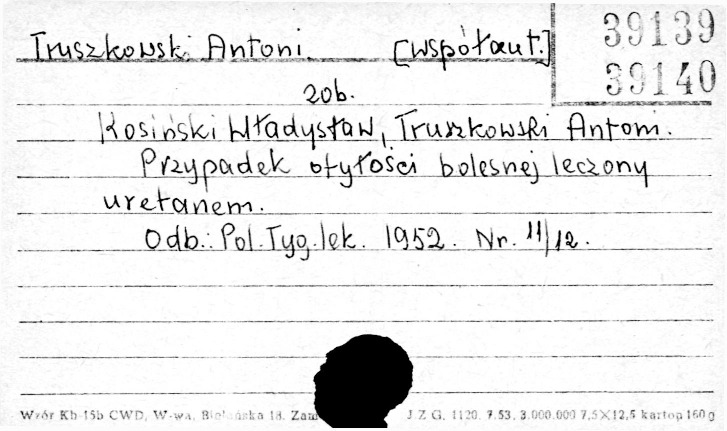 Truszkowski Antoni. [współaut.]
39139
39140
zob.
Kosiński Władysław, Truszkowski Antoni.
Przypadek otyłości bolesnej leczony
uretanem.
Odb.: Pol. Tyg. lek. 1952. Nr. 11/12.
Wzór Kb-15b CWD, W-wa, Bielańska 18. Zam J.Z.G. 1120. 7.53. 3.000.000 7,5×12,5 kartop 160 g